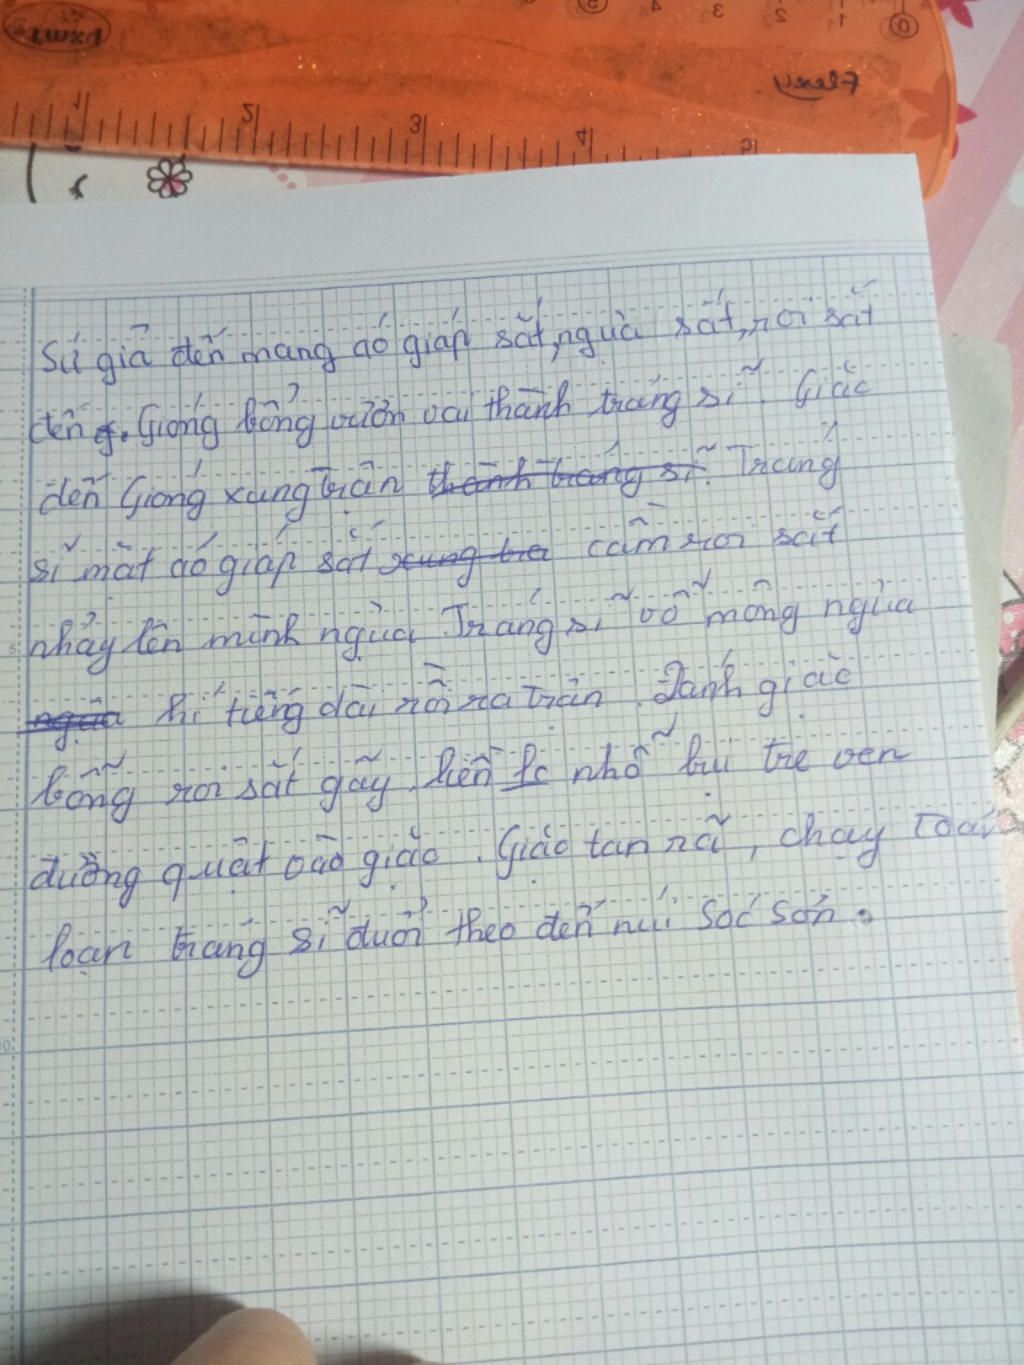 Sứ giả đến mang áo giáp sắt, ngựa sắt, roi sắt
đến. Gióng bổng vươn vai thành tráng sĩ. Giặc
đến Gióng xung trận thành tráng sĩ. Tráng
sĩ mặt áo giáp sắt xung tra cầm roi sắt
nhảy lên mình ngựa. Tráng sĩ vỗ mông ngựa
ngựa hí tiếng dài rồi ra trận. Đánh giặc
bỗng roi sắt gãy, liền nhổ bụi tre ven
đường quật vào giặc. Giặc tan rã, chạy toán
loạn tráng sĩ đuổi theo đến núi Sóc Sơn.
Flexy
0 1 2 3 4 5
1 2 3 4 5